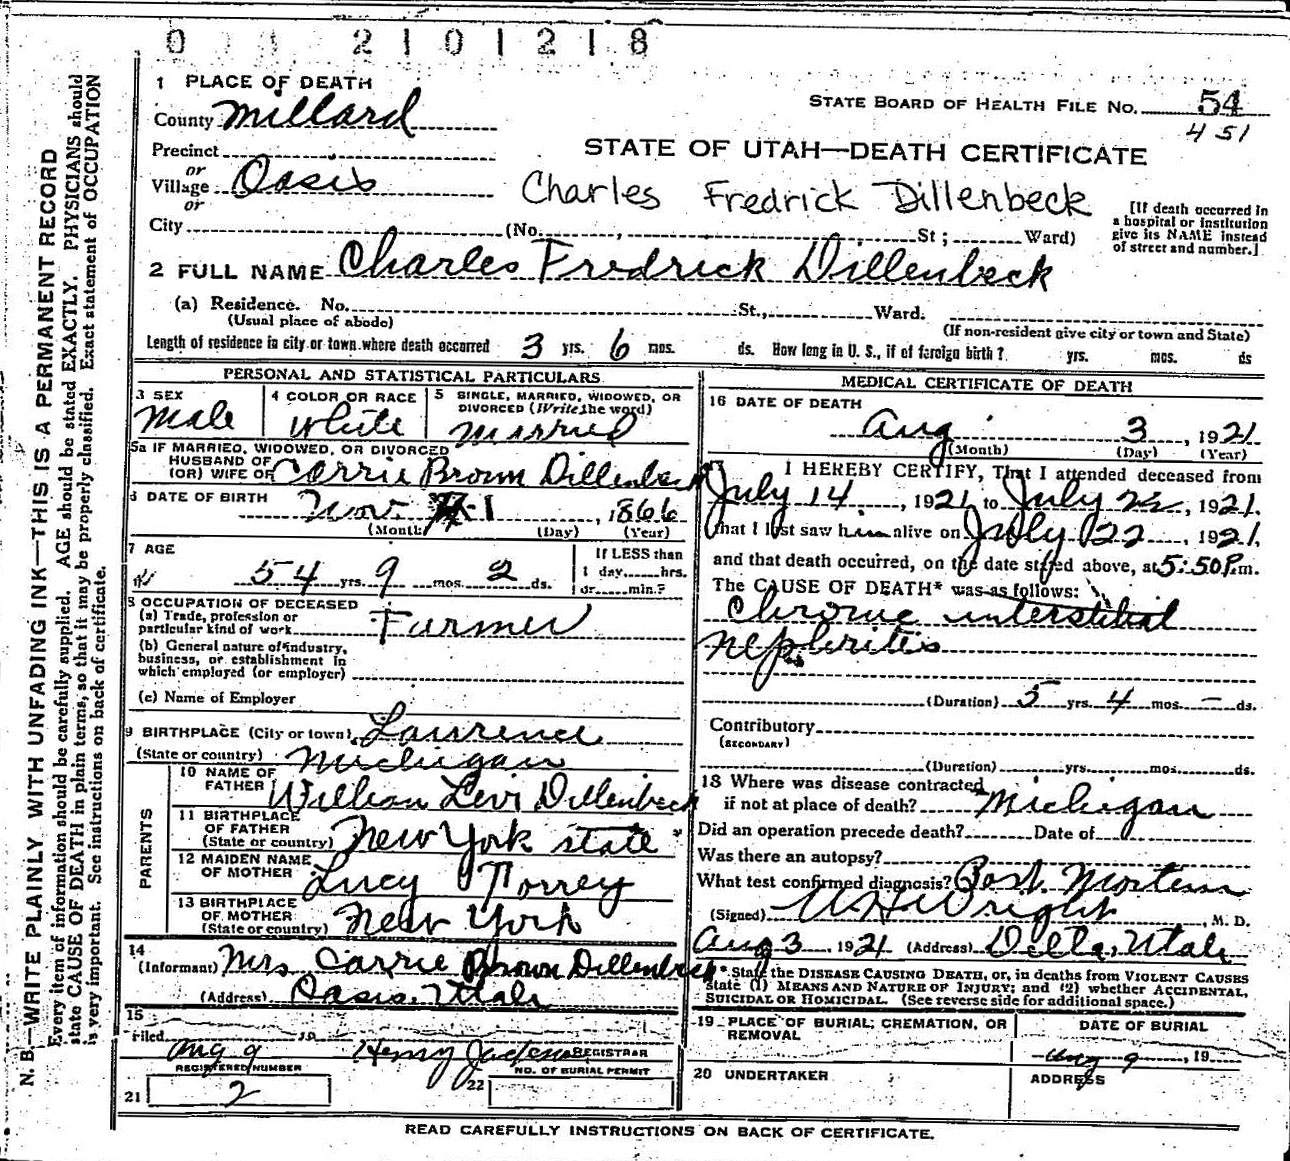 0 2101218
1 PLACE OF DEATH
County Millard
STATE BOARD OF HEALTH FILE NO. 54
451
Precinct
STATE OF UTAH—DEATH CERTIFICATE
or
Village Oasis
or
Charles Fredrick Dillenbeck
[If death occurred in a hospital or institution give its NAME instead of street and number.]
City (No. , St ; Ward)
2 FULL NAME Charles Fredrick Dillenbeck
(a) Residence. No. St., Ward.
(Usual place of abode) (If non-resident give city or town and State)
Length of residence in city or town where death occurred 3 yrs. 6 mos. ds. How long in U. S., if of foreign birth? yrs. mos. ds
PERSONAL AND STATISTICAL PARTICULARS
3 SEX Male
4 COLOR OR RACE White
5 SINGLE, MARRIED, WIDOWED, OR DIVORCED (Write the word) Married
5a IF MARRIED, WIDOWED, OR DIVORCED
HUSBAND OF
(OR) WIFE OF Carrie Brown Dillenbeck
6 DATE OF BIRTH Nov. 1, 1866
(Month) (Day) (Year)
7 AGE
54 yrs. 9 mos. 2 ds.
If LESS than
1 day hrs.
or min.?
8 OCCUPATION OF DECEASED
(a) Trade, profession or
particular kind of work Farmer
(b) General nature of industry,
business, or establishment in
which employed (or employer)
(c) Name of Employer
9 BIRTHPLACE (City or town) Lawrence
(State or country) Michigan
PARENTS
10 NAME OF FATHER William Levi Dillenbeck
11 BIRTHPLACE OF FATHER (State or country) New York state
12 MAIDEN NAME OF MOTHER Lucy Torrey
13 BIRTHPLACE OF MOTHER (State or country) New York
14
(Informant) Mrs Carrie Brown Dillenbeck
(Address) Oasis, Utah
15
Filed Aug 9 19 Henry REGISTRAR
REGISTERED NUMBER
21 2
22 NO. OF BURIAL PERMIT
MEDICAL CERTIFICATE OF DEATH
16 DATE OF DEATH
Aug 3, 1921
(Month) (Day) (Year)
I HEREBY CERTIFY, That I attended deceased from
July 14, 1921 to July 22, 1921,
that I last saw him alive on July 22, 1921,
and that death occurred, on the date stated above, at 5:50 P.m.
The CAUSE OF DEATH* was as follows:
Chronic interstitial
nephritis
(Duration) 5 yrs. 4 mos. – ds.
Contributory
(SECONDARY)
(Duration) yrs. mos. ds.
18 Where was disease contracted
if not at place of death? Michigan
Did an operation precede death? Date of
Was there an autopsy?
What test confirmed diagnosis? Post Mortem
(Signed) Wright, M. D.
Aug 3, 1921 (Address) Delta, Utah
* State the DISEASE CAUSING DEATH, or, in deaths from VIOLENT CAUSES
state (1) MEANS AND NATURE OF INJURY; and (2) whether ACCIDENTAL,
SUICIDAL OR HOMICIDAL. (See reverse side for additional space.)
19 PLACE OF BURIAL, CREMATION, OR REMOVAL
DATE OF BURIAL
Aug 9, 19
20 UNDERTAKER
ADDRESS
READ CAREFULLY INSTRUCTIONS ON BACK OF CERTIFICATE.
N. B.—WRITE PLAINLY WITH UNFADING INK—THIS IS A PERMANENT RECORD
Every item of information should be carefully supplied. AGE should be stated EXACTLY. PHYSICIANS should
state CAUSE OF DEATH in plain terms, so that it may be properly classified. Exact statement of OCCUPATION
is very important. See instructions on back of certificate.